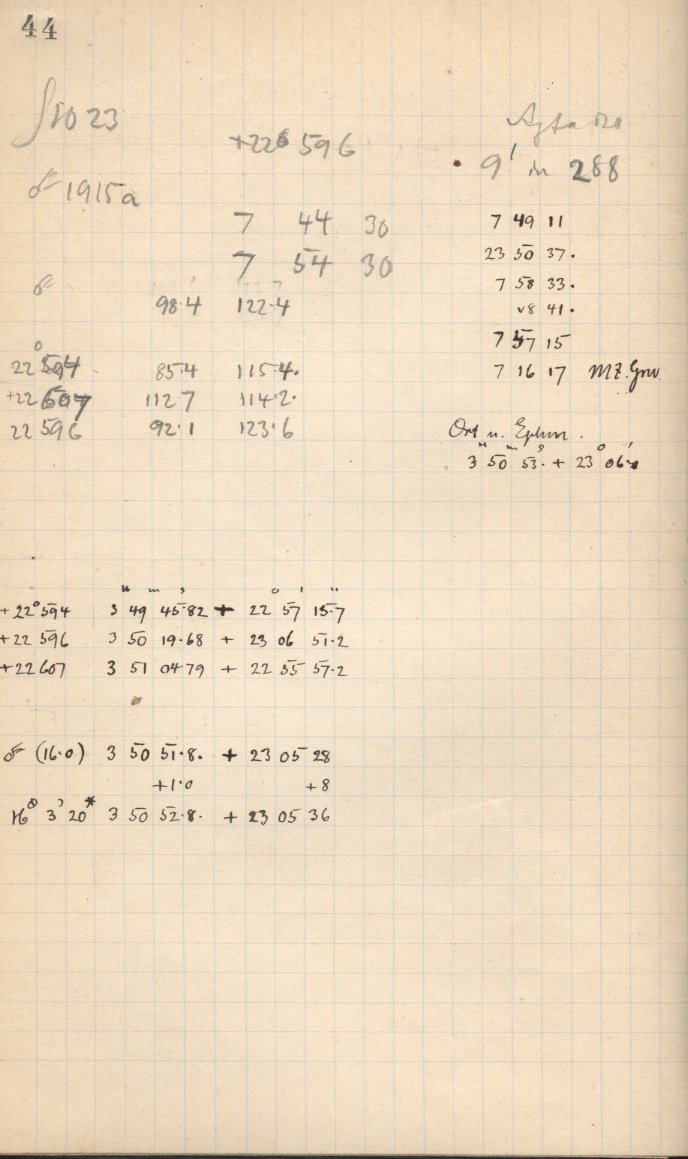 44
1023
+22° 596
9' in 288
☄ 1915a
7 44 30
7 54 30
7 49 11
23 50 37.
7 58 33.
v8 41.
7 57 15
7 16 17 MZ. Grw
☄ 98.4 122.4
22° 594 85.4 115.4.
+22 607 112.7 114.2.
22 596 92.1 123.6
Ort n. Ephem.
h m s ° '
3 50 53. + 23 06.
h m s ° ' "
+22° 594 3 49 45.82 + 22 57 15.7
+22 596 3 50 19.68 + 23 06 51.2
+22 607 3 51 04 79 + 22 55 57.2
☄ (16.0) 3 50 51.8. + 23 05 28
+1.0 +8
3 20* 3 50 52.8. + 23 05 36